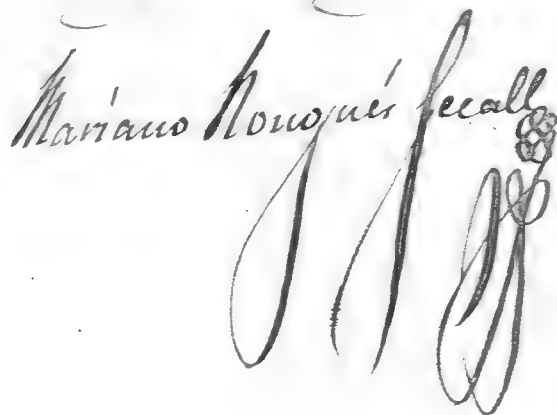 Mariano Nougués Secall